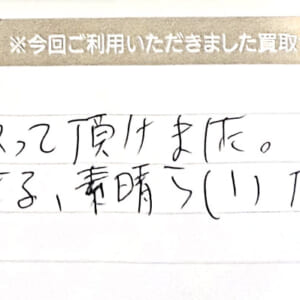 ※今回ご利用いただきました買取
って頂けました。
る、素晴らしい